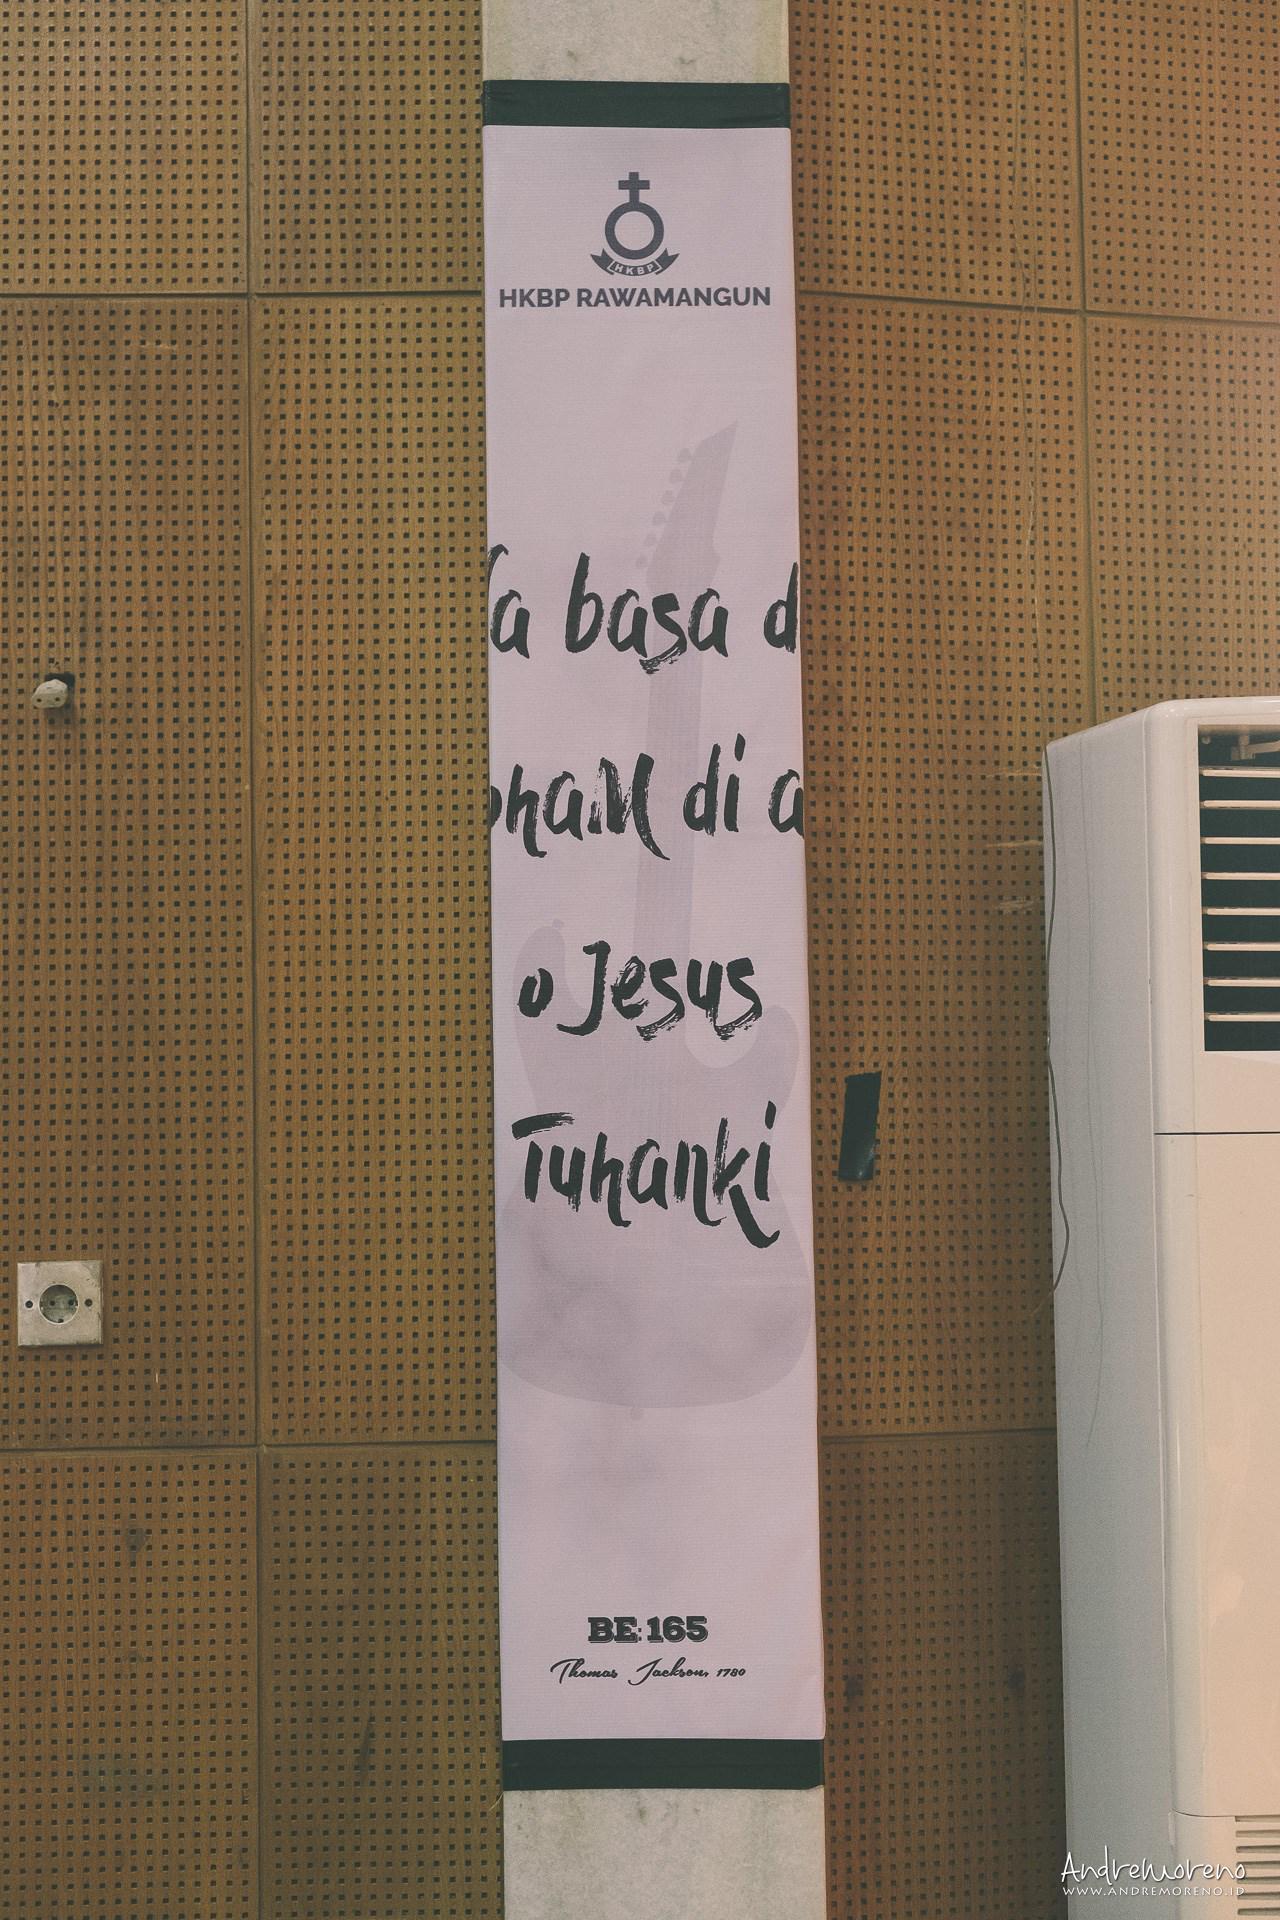 HKBP
HKBP RAWAMANGUN
basa
di
o Jesus
Tuhanki
BE: 165
Thomas Jackson, 1780
AndreMoreno
WWW.ANDREMORENO.ID